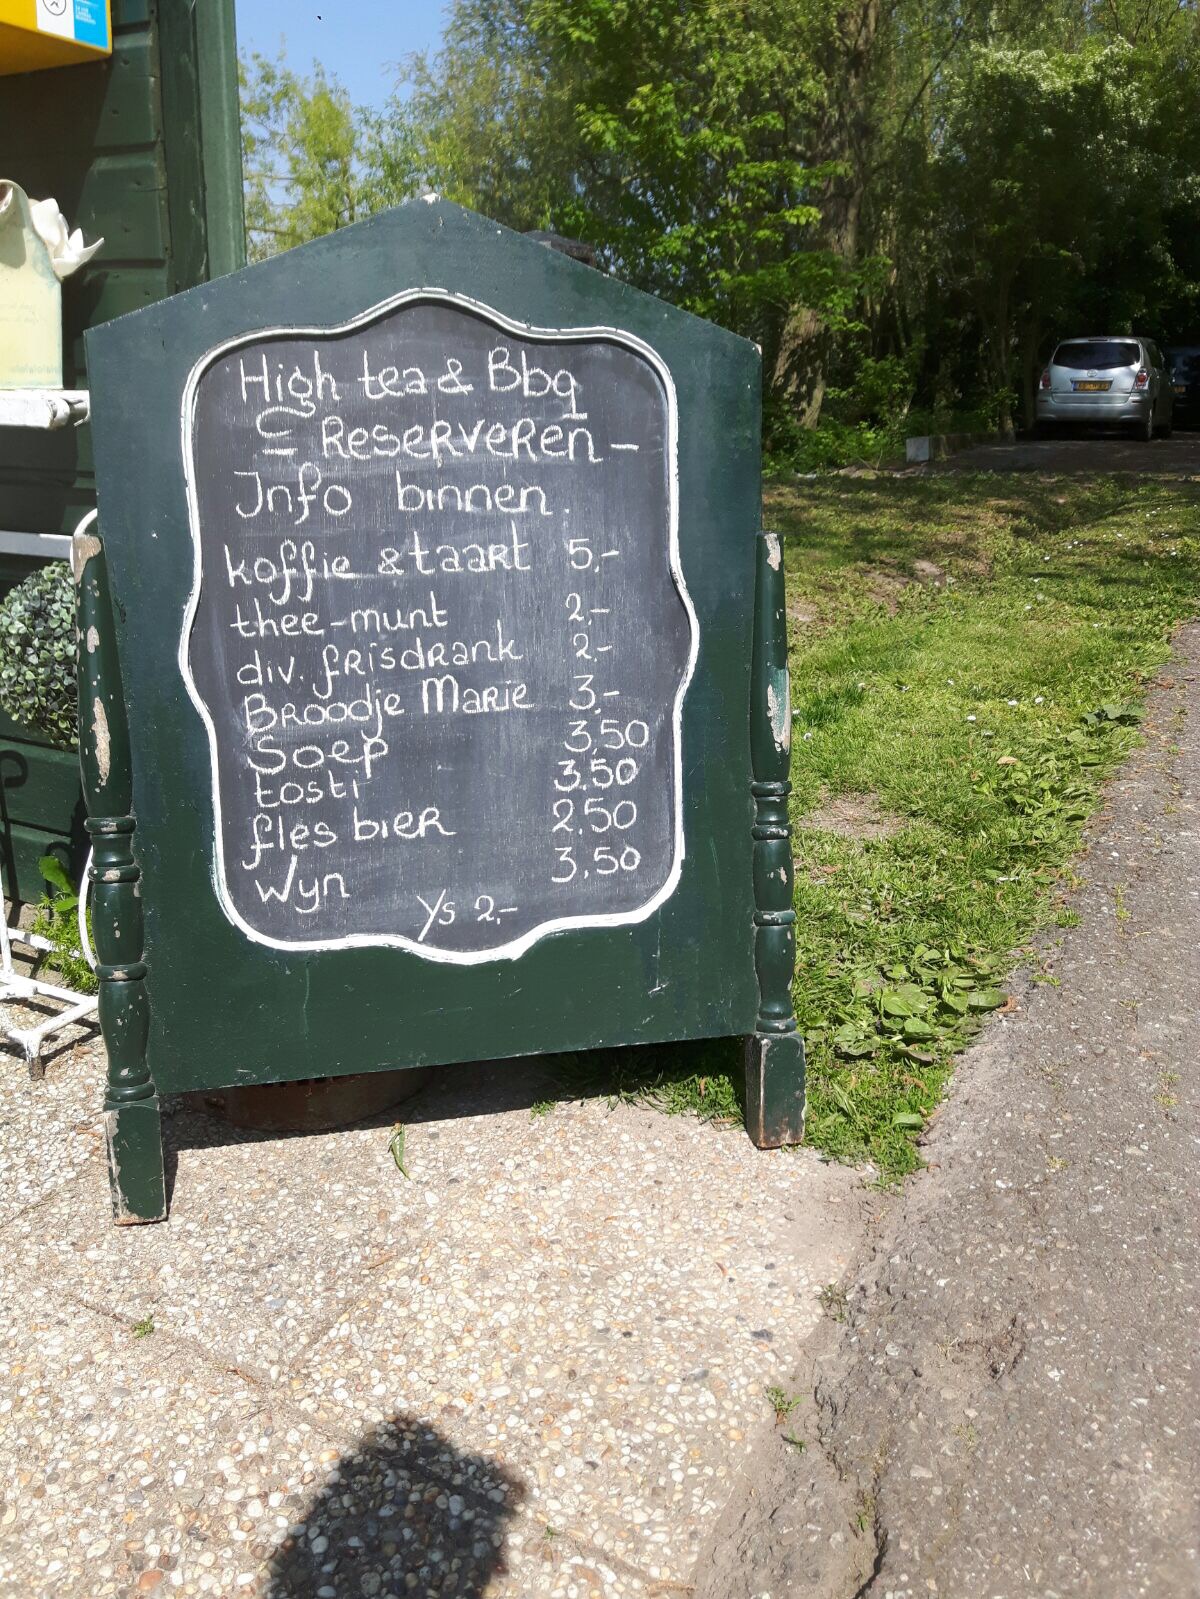 High tea & Bbq
Reserveren -
Info binnen.
koffie & taart 5,-
thee-munt 2,-
div. frisdrank 2,-
Broodje Marie 3,-
Soep 3,50
tosti 3,50
fles bier 2,50
Wyn 3,50
Ys 2,-